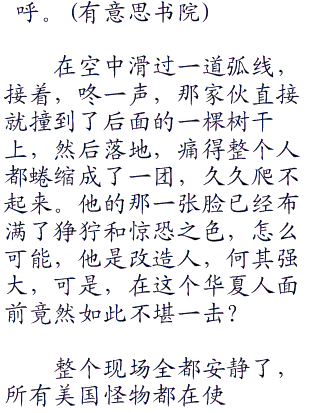 呼。(有意思书院)
在空中滑过一道弧线，
接着，咚一声，那家伙直接
就撞到了后面的一棵树干
上，然后落地，痛得整个人
都蜷缩成了一团，久久爬不
起来。他的那一张脸已经布
满了狰狞和惊恐之色，怎么
可能，他是改造人，何其强
大，可是，在这个华夏人面
前竟然如此不堪一击？
整个现场全都安静了，
所有美国怪物都在使